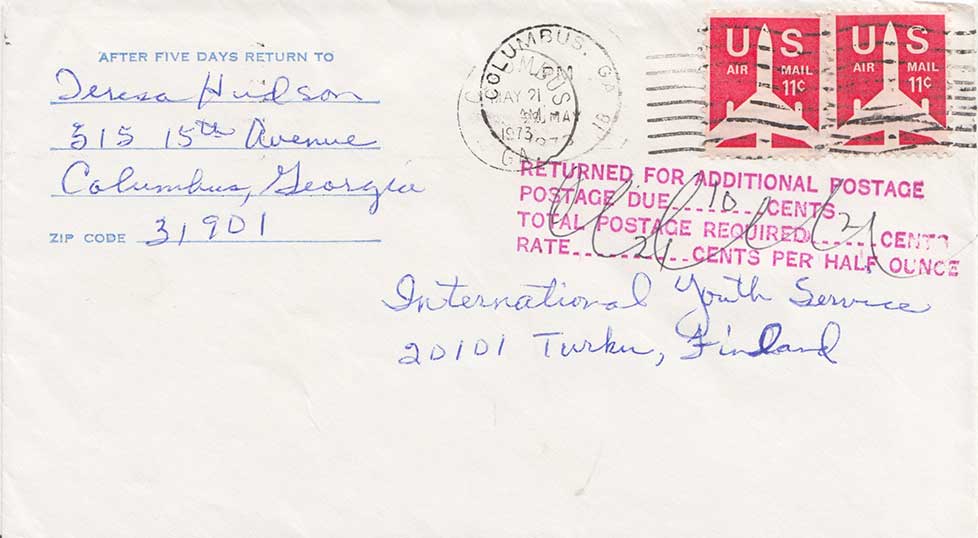 AFTER FIVE DAYS RETURN TO
Teresa Hudson
515 15th Avenue
Columbus, Georgia
ZIP CODE 31901
COLUMBUS, GA
PM
MAY 21
1973
GA
US
AIR MAIL
11¢
US
AIR MAIL
11¢
RETURNED FOR ADDITIONAL POSTAGE
POSTAGE DUE 10 CENTS
TOTAL POSTAGE REQUIRED 21 CENTS
RATE 21 CENTS PER HALF OUNCE
International Youth Service
20101 Turku, Finland